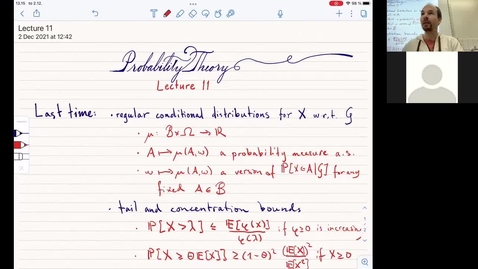 13.15 to 2.12.
56 %
Lecture 11
2 Dec 2021 at 12:42
Probability Theory
Lecture 11
Last time: • regular conditional distributions for X w.r.t. G
• μ: B×Ω → ℝ
• A ↦ μ(A,ω) a probability measure a.s.
• ω ↦ μ(A,ω) a version of P[X∈A|G] for any
fixed A∈B
• tail and concentration bounds
• P[X>λ] ≤ E[φ(X)]/φ(λ) if φ≥0 is increasing
• P[X ≥ θE[X]] ≥ (1-θ)² (E[X])²/E[X²] if X≥0